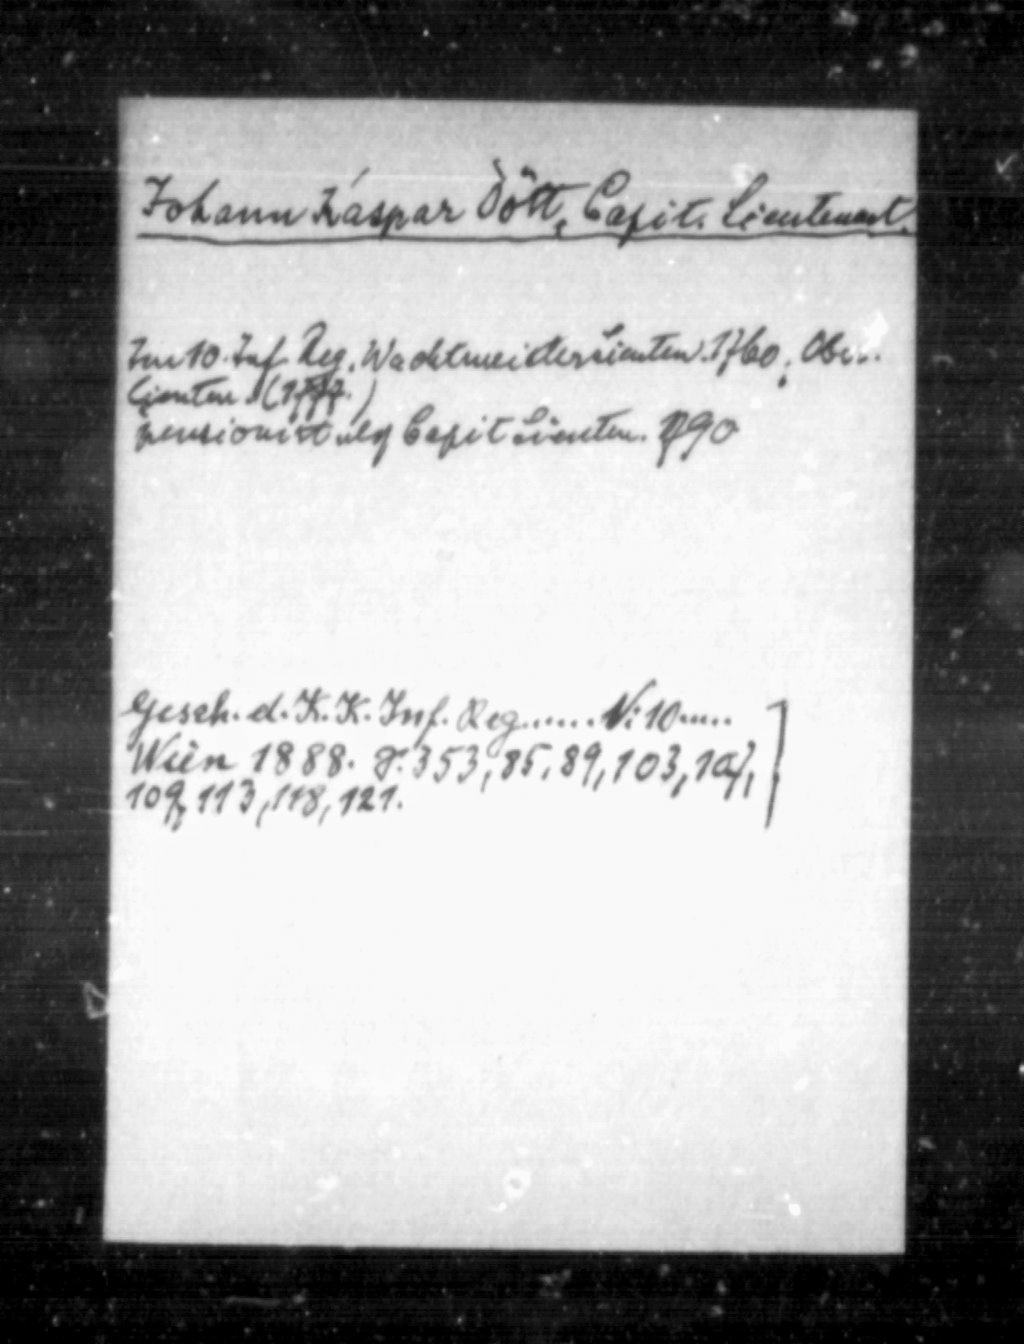 Johann Kaspar Dött, Capit. Lieutenant.
Im 10. Inf. Reg. Wachtmeisterlieuten. 1760; Ober-
lieuten. (1777.)
pensionirt als Capit Lieuten. 790
Gesch. d. K. K. Inf. Reg...... N: 10.....
Wien 1888. S. 353, 85, 89, 103, 107,
109, 113, 118, 121.